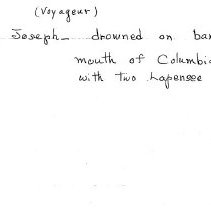 (Voyageur)
Joseph - drowned on bar
mouth of Columbia
with two Lapensee